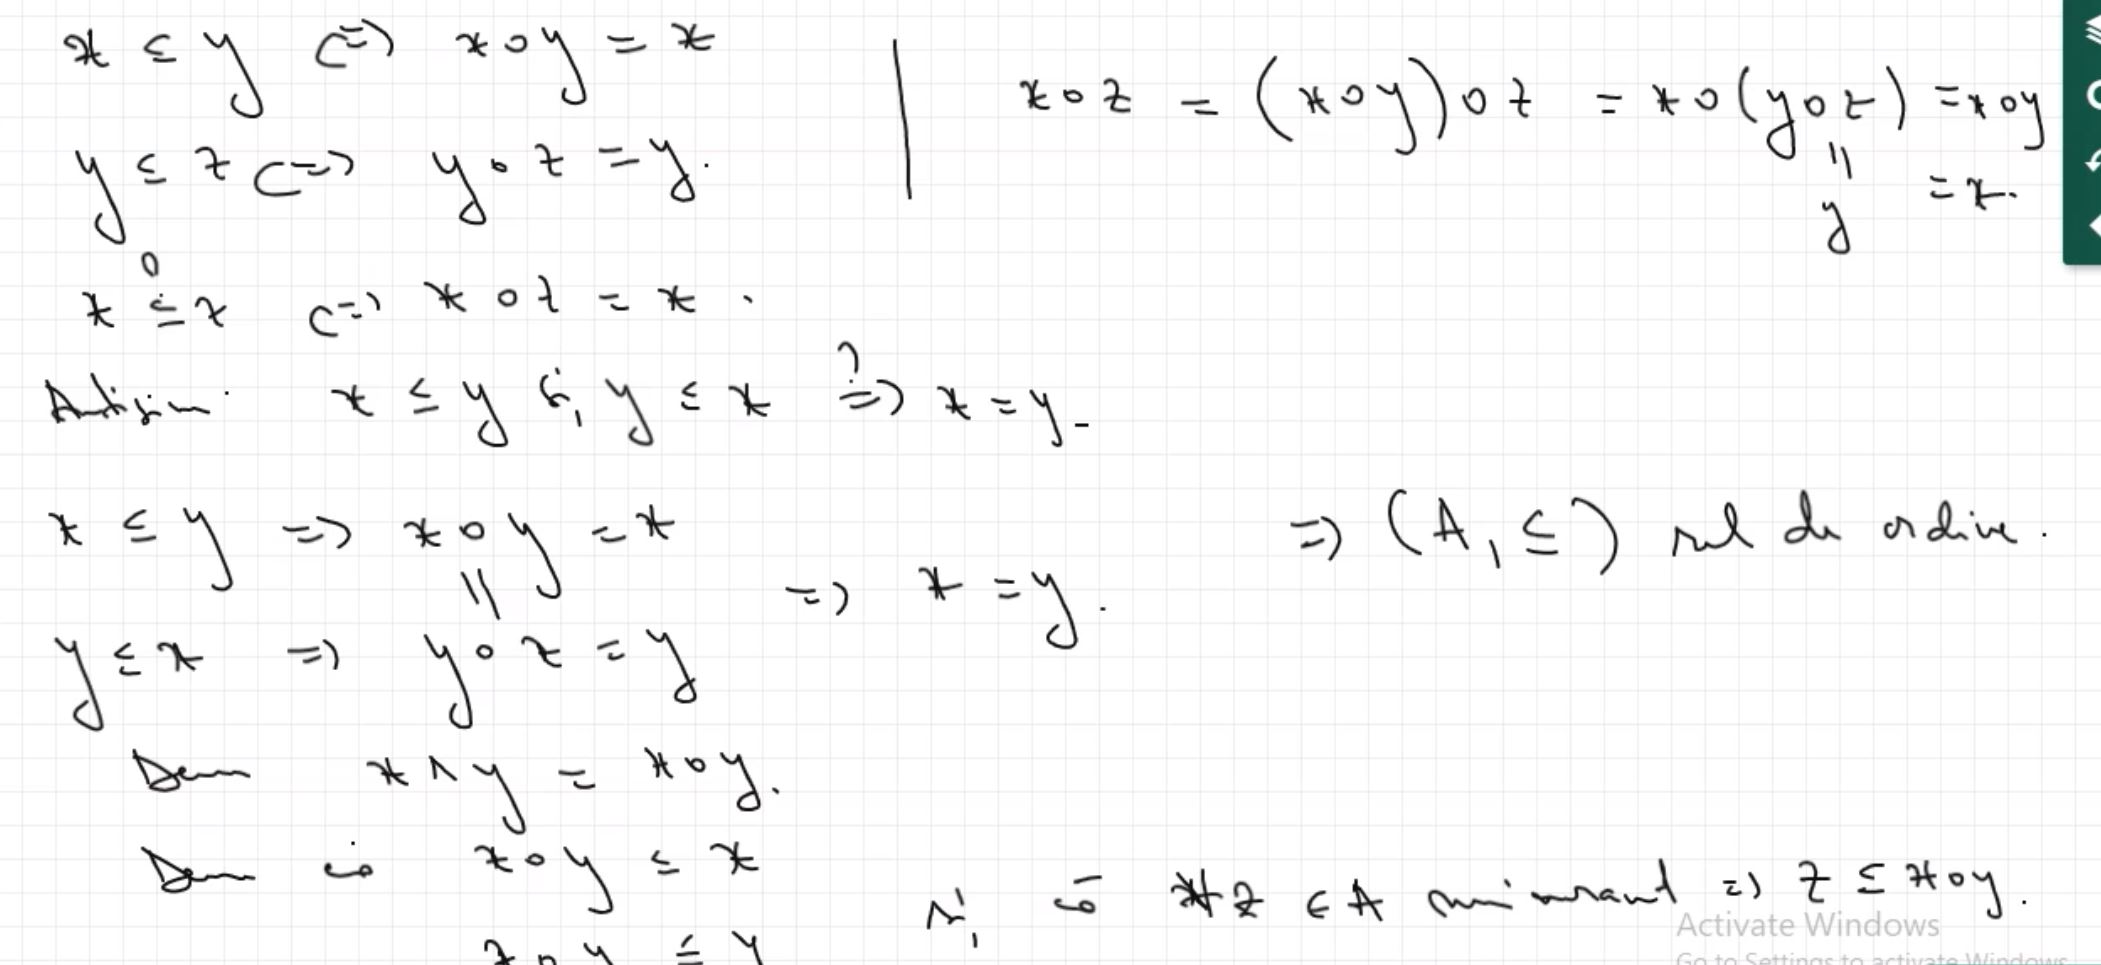 x ≤ y <=> x ∘ y = x
y ≤ z <=> y ∘ z = y.
x ∘ z = (x ∘ y) ∘ z = x ∘ (y ∘ z) = x ∘ y
|| = x.
y
?
x ≤ z <=> x ∘ z = x.
Antisim. x ≤ y și y ≤ x ?=> x = y.
x ≤ y => x ∘ y = x
=> (A, ≤) rel de ordine.
|| => x = y.
y ≤ x => y ∘ x = y
Dem x ∧ y = x ∘ y.
Dem că x ∘ y ≤ x
și că ∀ z ∈ A minorant => z ≤ x ∘ y.
x ∘ y ≤ y
Activate Windows
Go to Settings to activate Windows.